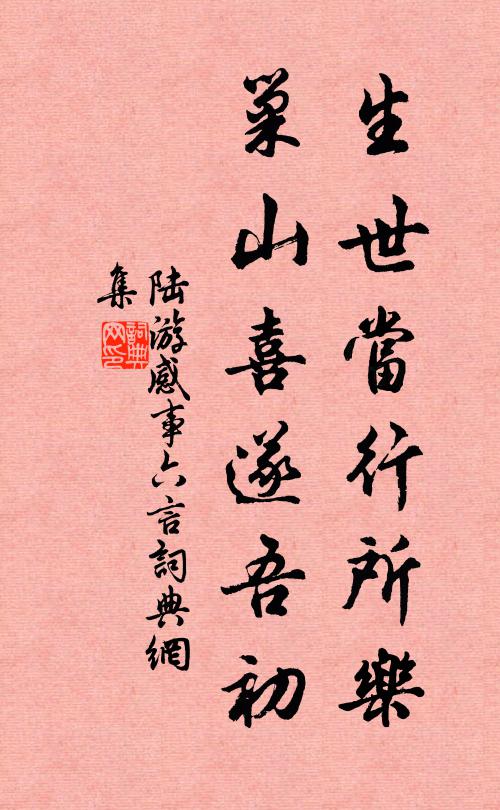 生世當行所樂
巢山喜遂吾初
陸游感事六言詞典網
集
詞典網印